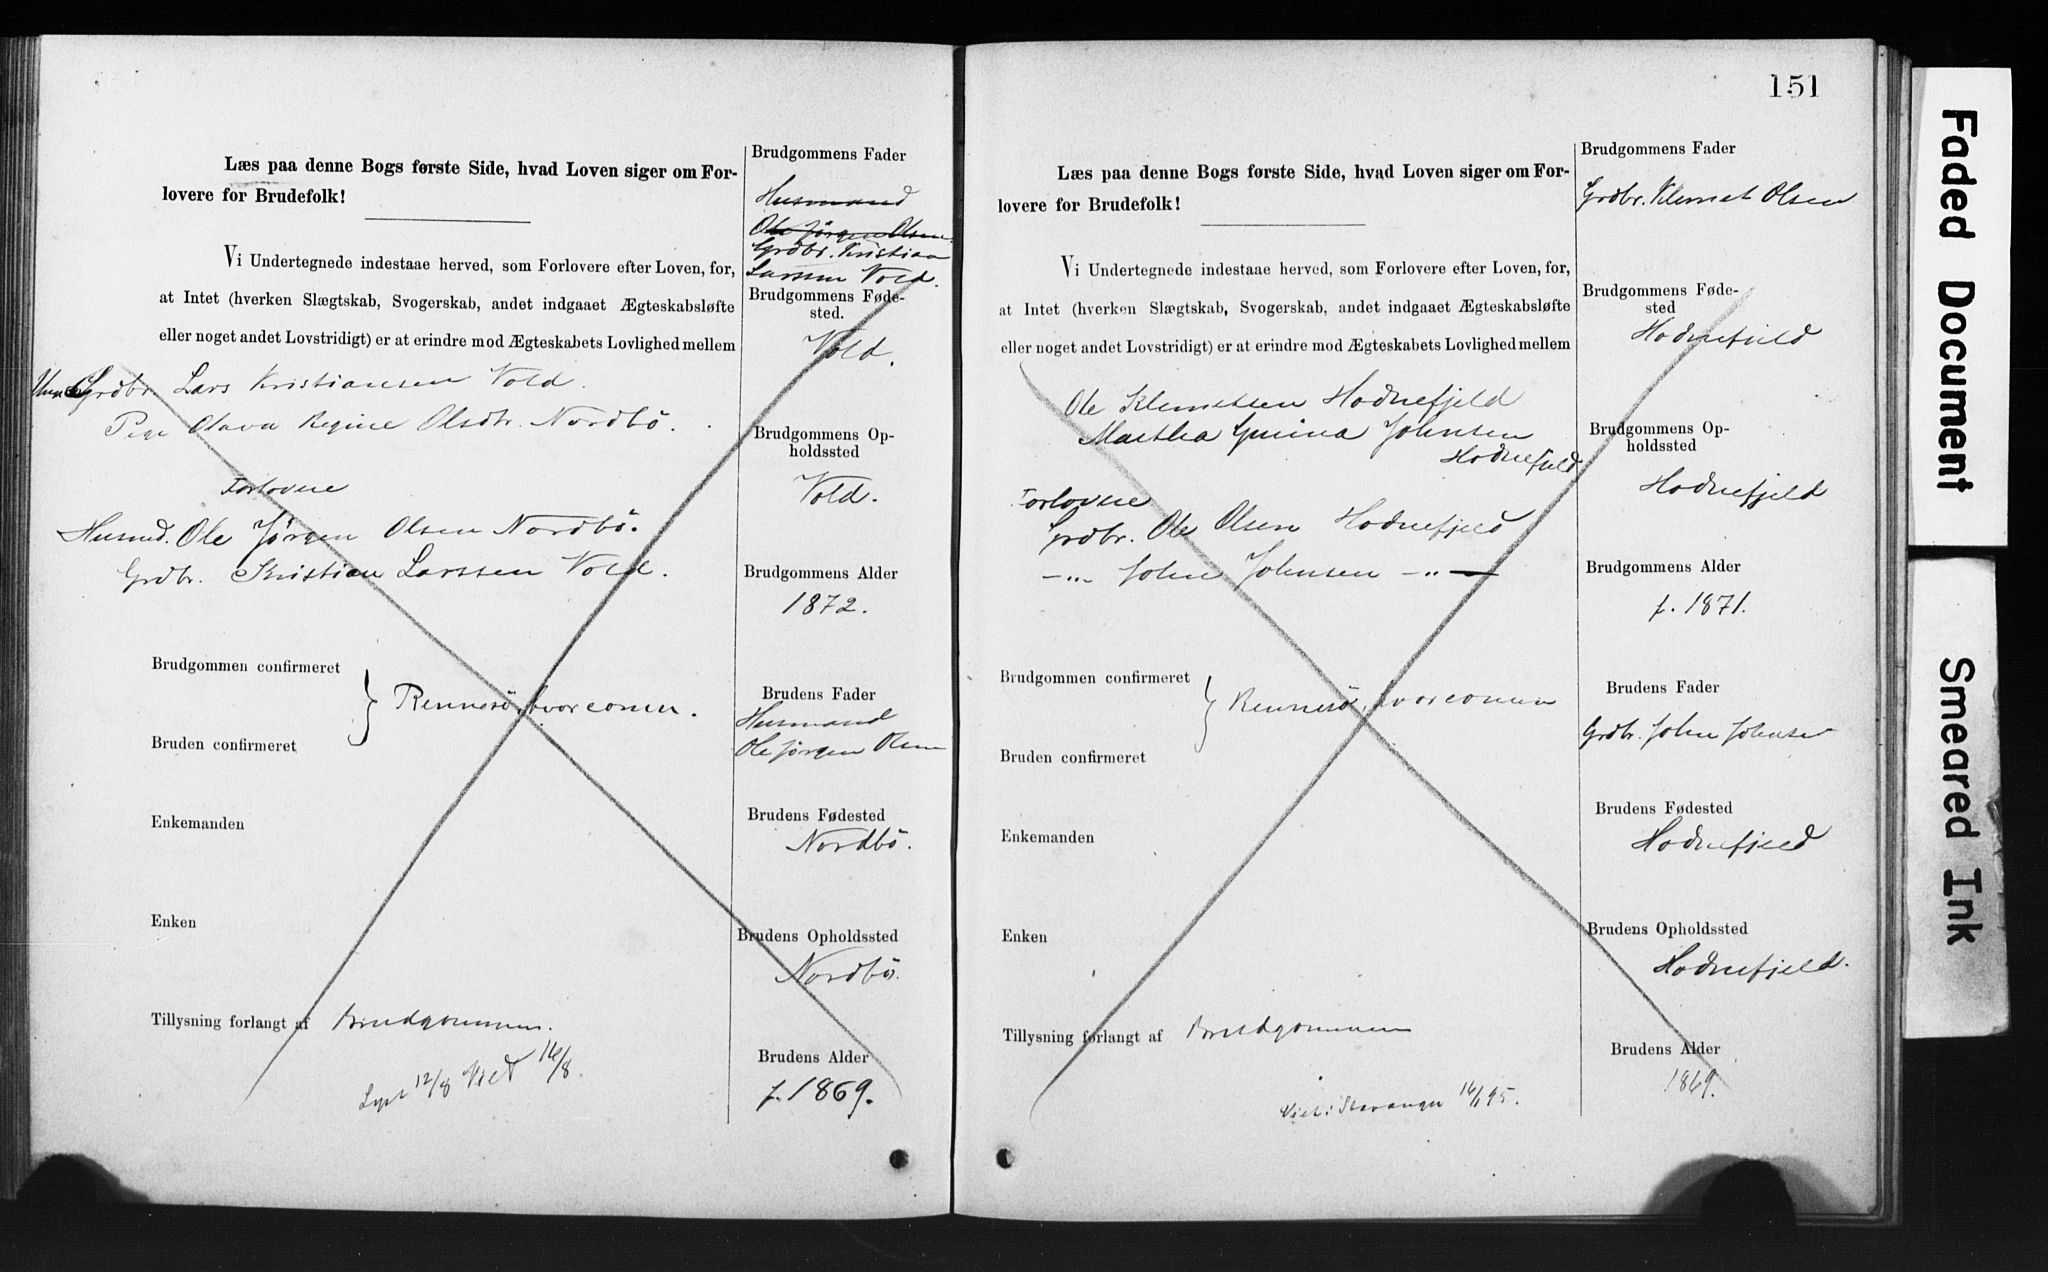 Læs paa denne Bogs første Side, hvad Loven siger om For-
lovere for Brudefolk!
Vi Undertegnede indestaae herved, som Forlovere efter Loven, for,
at Intet (hverken Slægtskab, Svogerskab, andet indgaaet Ægteskabsløfte
eller noget andet Lovstridigt) er at erindre mod Ægteskabets Lovlighed mellem
Grdbr. Lars Kristiansen Vold.
Pige Olava Regine Olsdtr. Nordbö.
Forlovere
Husmd. Ole Jørgen Olsen Nordbö.
Grdbr. Kristian Larssen Vold.
Brudgommen confirmeret
Rennesö, hvor comm.
Bruden confirmeret
Enkemanden
Enken
Tillysning forlangt af Brudgommen.
Lyst 12/8 Viet 16/8.
Brudgommens Fader
Husmand
Ole Jørgen Olsen.
Grdbr. Kristian
Larssen Vold.
Brudgommens Føde-
sted.
Vold.
Brudgommens Op-
holdssted
Vold.
Brudgommens Alder
1872.
Brudens Fader
Husmand
Ole Jørgen Olsen
Brudens Fødested
Nordbö.
Brudens Opholdssted
Nordbö.
Brudens Alder
f. 1869.
151
Læs paa denne Bogs første Side, hvad Loven siger om For-
lovere for Brudefolk!
Vi Undertegnede indestaae herved, som Forlovere efter Loven, for,
at Intet (hverken Slægtskab, Svogerskab, andet indgaaet Ægteskabsløfte
eller noget andet Lovstridigt) er at erindre mod Ægteskabets Lovlighed mellem
Ole Klemetsen Hodnefjeld
Martha Gurina Johnsen
Hodnefjeld
Forlovere
Grdbr. Ole Olsen Hodnefjeld
-„- John Johnsen -„-
Brudgommen confirmeret
Rennesö, hvor comm
Bruden confirmeret
Enkemanden
Enken
Tillysning forlangt af Brudgommen
Viet i Stavanger 95.
Brudgommens Fader
Grdbr. Klemet Olsen
Brudgommens Føde-
sted
Hodnefjeld
Brudgommens Op-
holdssted
Hodnefjeld
Brudgommens Alder
f. 1871.
Brudens Fader
Grdbr. John Johnsen
Brudens Fødested
Hodnefjeld
Brudens Opholdssted
Hodnefjeld.
Brudens Alder
1869.
Faded Document
Smeared Ink